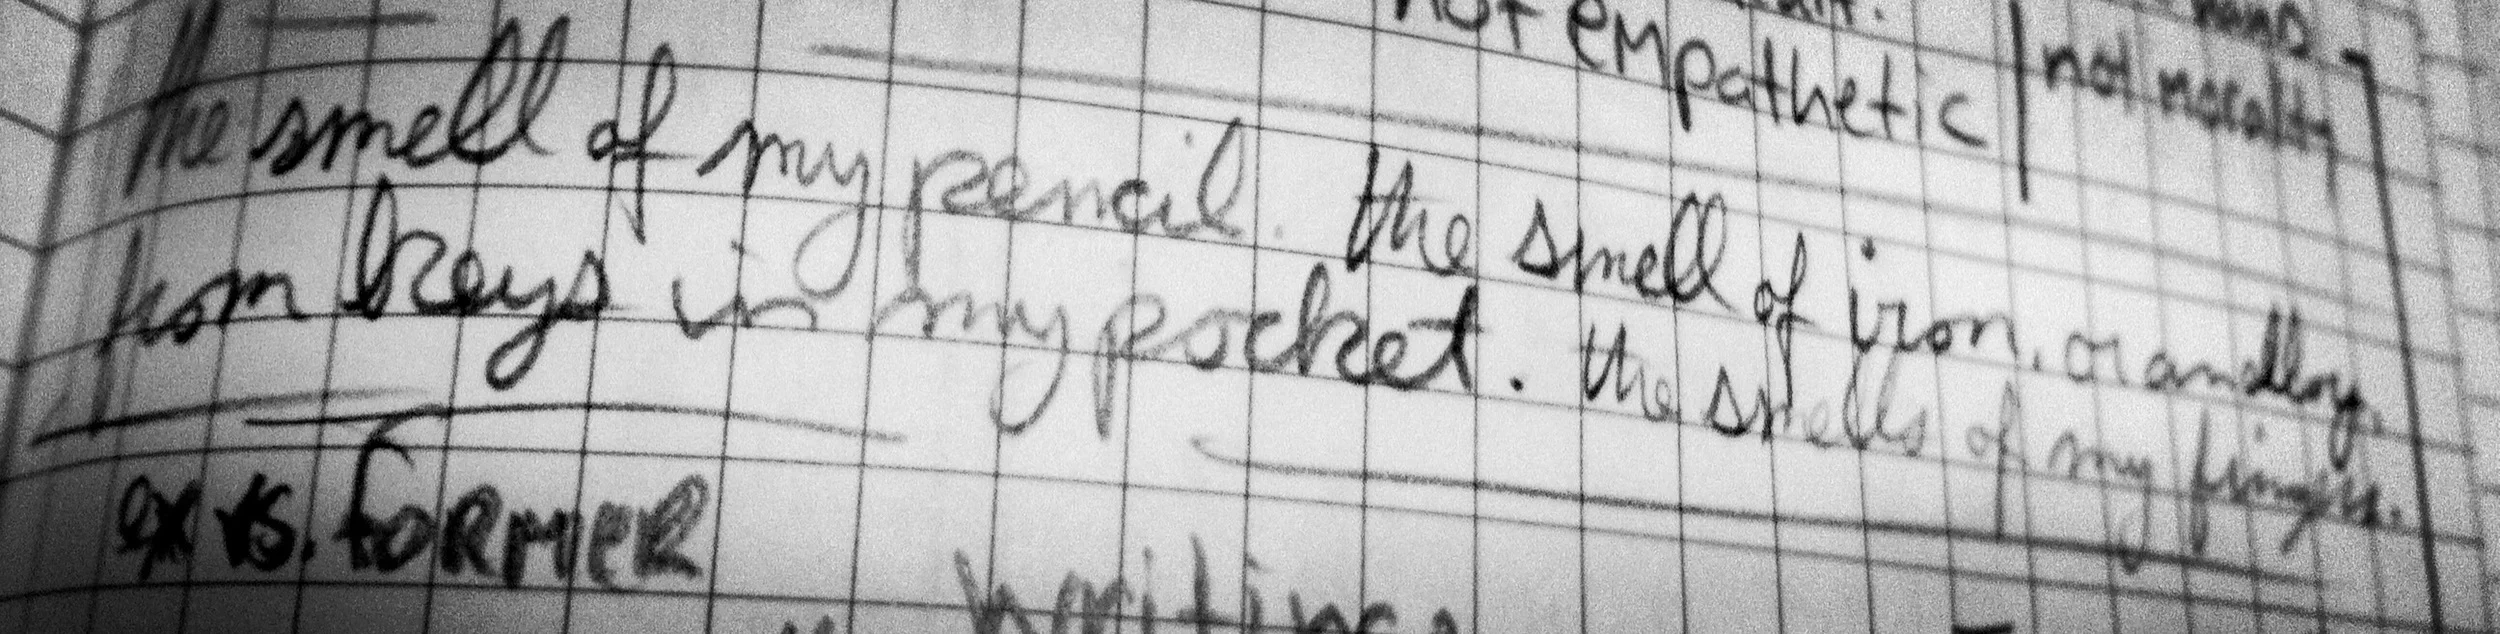 not empathetic | not morality
the smell of my pencil. the smell of iron, or an alloy,
from keys in my pocket. the smells of my fingers.
ex vs. FORMER
writing